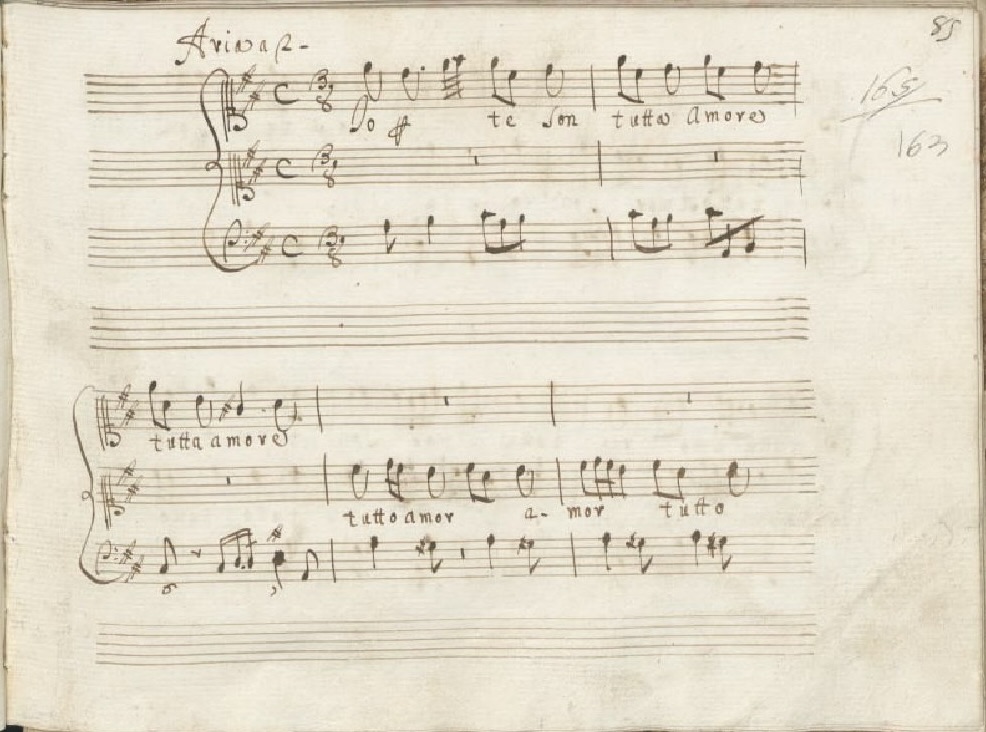 85
Aria a 2.
165
163
Io p te son tutta Amore
tutta amore
tutto amor a- mor tutto